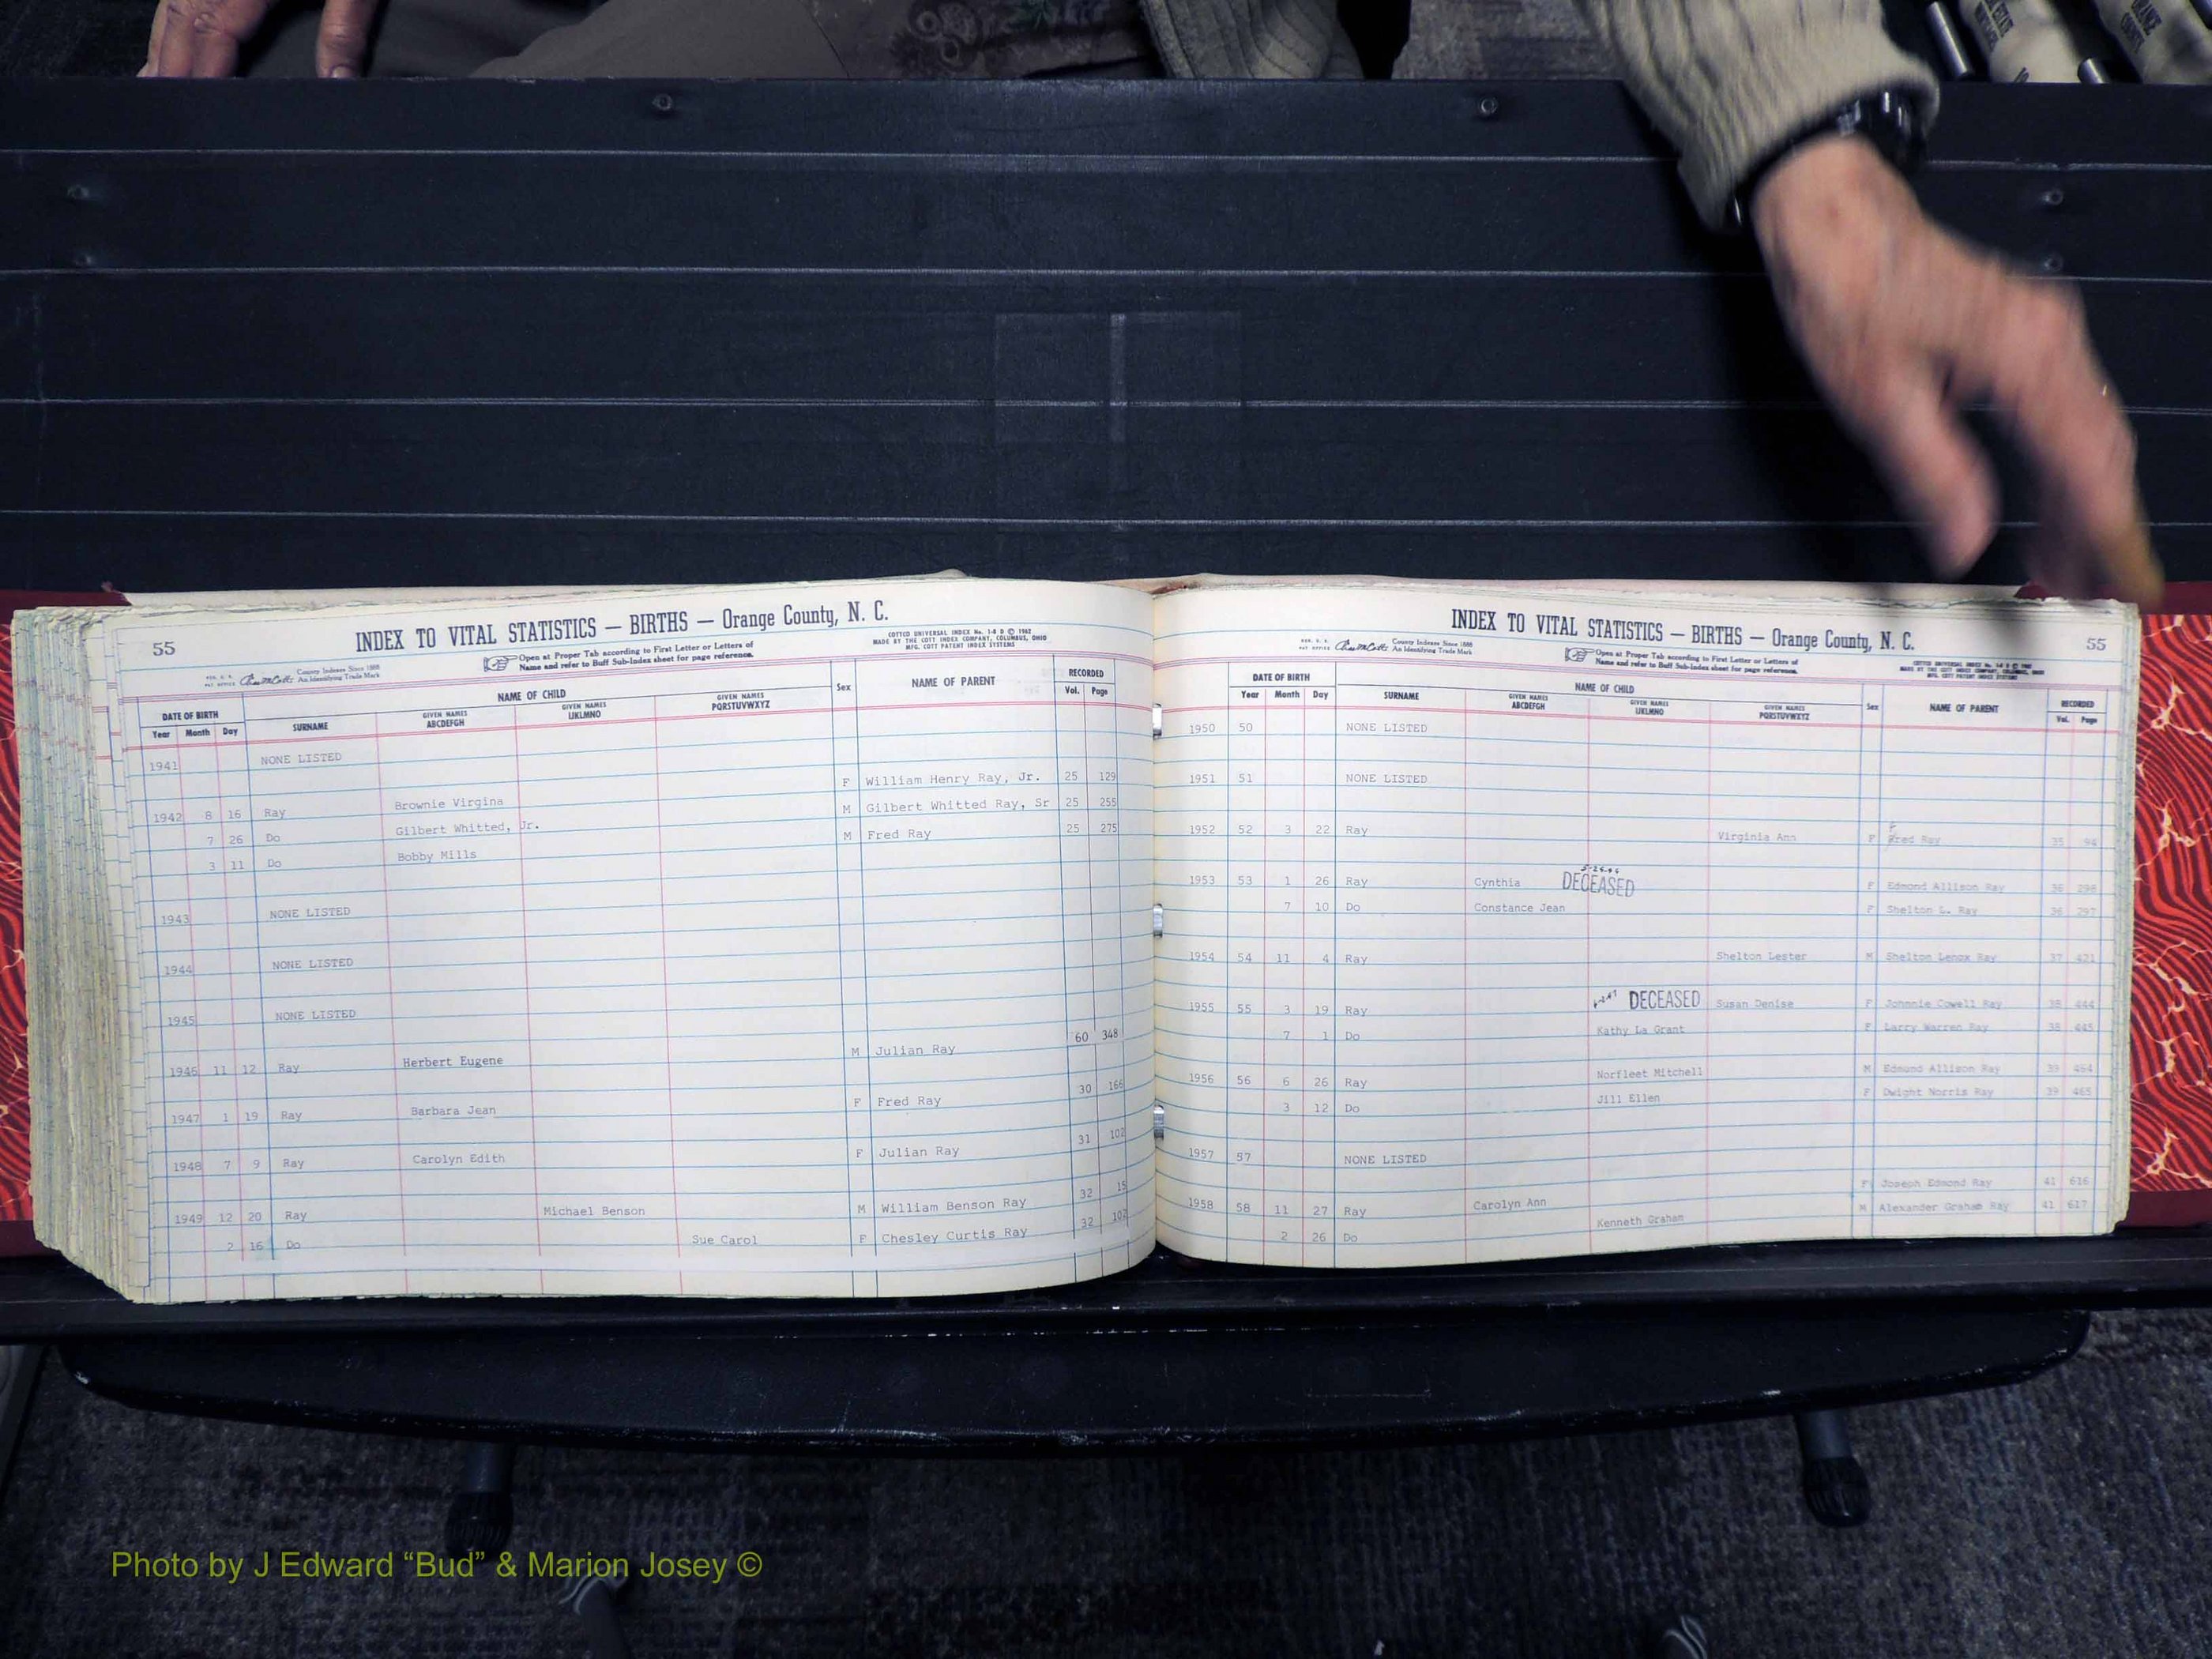 55
INDEX TO VITAL STATISTICS — BIRTHS — Orange County, N. C.
COTTCO UNIVERSAL INDEX No. 1-8 D © 1962
MADE BY THE COTT INDEX COMPANY, COLUMBUS, OHIO
MFG. COTT PATENT INDEX SYSTEMS
County Indexes Since 1888
An Identifying Trade Mark
Open at Proper Tab according to First Letter or Letters of
Name and refer to Buff Sub-Index sheet for page reference.
DATE OF BIRTH NAME OF CHILD Sex NAME OF PARENT RECORDED
Year Month Day SURNAME GIVEN NAMES ABCDEFGH GIVEN NAMES IJKLMNO GIVEN NAMES PQRSTUVWXYZ Vol. Page
1941 NONE LISTED
1942 8 16 Ray Brownie Virgina F William Henry Ray, Jr. 25 129
7 26 Do Gilbert Whitted, Jr. M Gilbert Whitted Ray, Sr 25 255
3 11 Do Bobby Mills M Fred Ray 25 275
1943 NONE LISTED
1944 NONE LISTED
1945 NONE LISTED
1946 11 12 Ray Herbert Eugene M Julian Ray 60 348
1947 1 19 Ray Barbara Jean F Fred Ray 30 166
1948 7 9 Ray Carolyn Edith F Julian Ray 31 102
1949 12 20 Ray Michael Benson M William Benson Ray 32 15
2 16 Do Sue Carol F Chesley Curtis Ray 32 102
INDEX TO VITAL STATISTICS — BIRTHS — Orange County, N. C.
55
County Indexes Since 1888
An Identifying Trade Mark
Open at Proper Tab according to First Letter or Letters of
Name and refer to Buff Sub-Index sheet for page reference.
DATE OF BIRTH NAME OF CHILD Sex NAME OF PARENT RECORDED
Year Month Day SURNAME GIVEN NAMES ABCDEFGH GIVEN NAMES IJKLMNO GIVEN NAMES PQRSTUVWXYZ Vol. Page
1950 50 NONE LISTED
1951 51 NONE LISTED
1952 52 3 22 Ray Virginia Ann F Fred Ray 35 94
1953 53 1 26 Ray Cynthia DECEASED F Edmond Allison Ray 36 296
7 10 Do Constance Jean F Shelton L. Ray 36 297
1954 54 11 4 Ray Shelton Lester M Shelton Lenox Ray 37 421
1955 55 3 19 Ray DECEASED Susan Denise F Johnnie Cowell Ray 38 444
7 1 Do Kathy La Grant F Larry Warren Ray 38 445
1956 56 6 26 Ray Norfleet Mitchell M Edmund Allison Ray 39 464
3 12 Do Jill Ellen F Dwight Norris Ray 39 465
1957 57 NONE LISTED
1958 58 11 27 Ray Carolyn Ann F Joseph Edmond Ray 41 616
2 26 Do Kenneth Graham M Alexander Graham Ray 41 617
Photo by J Edward “Bud” & Marion Josey ©